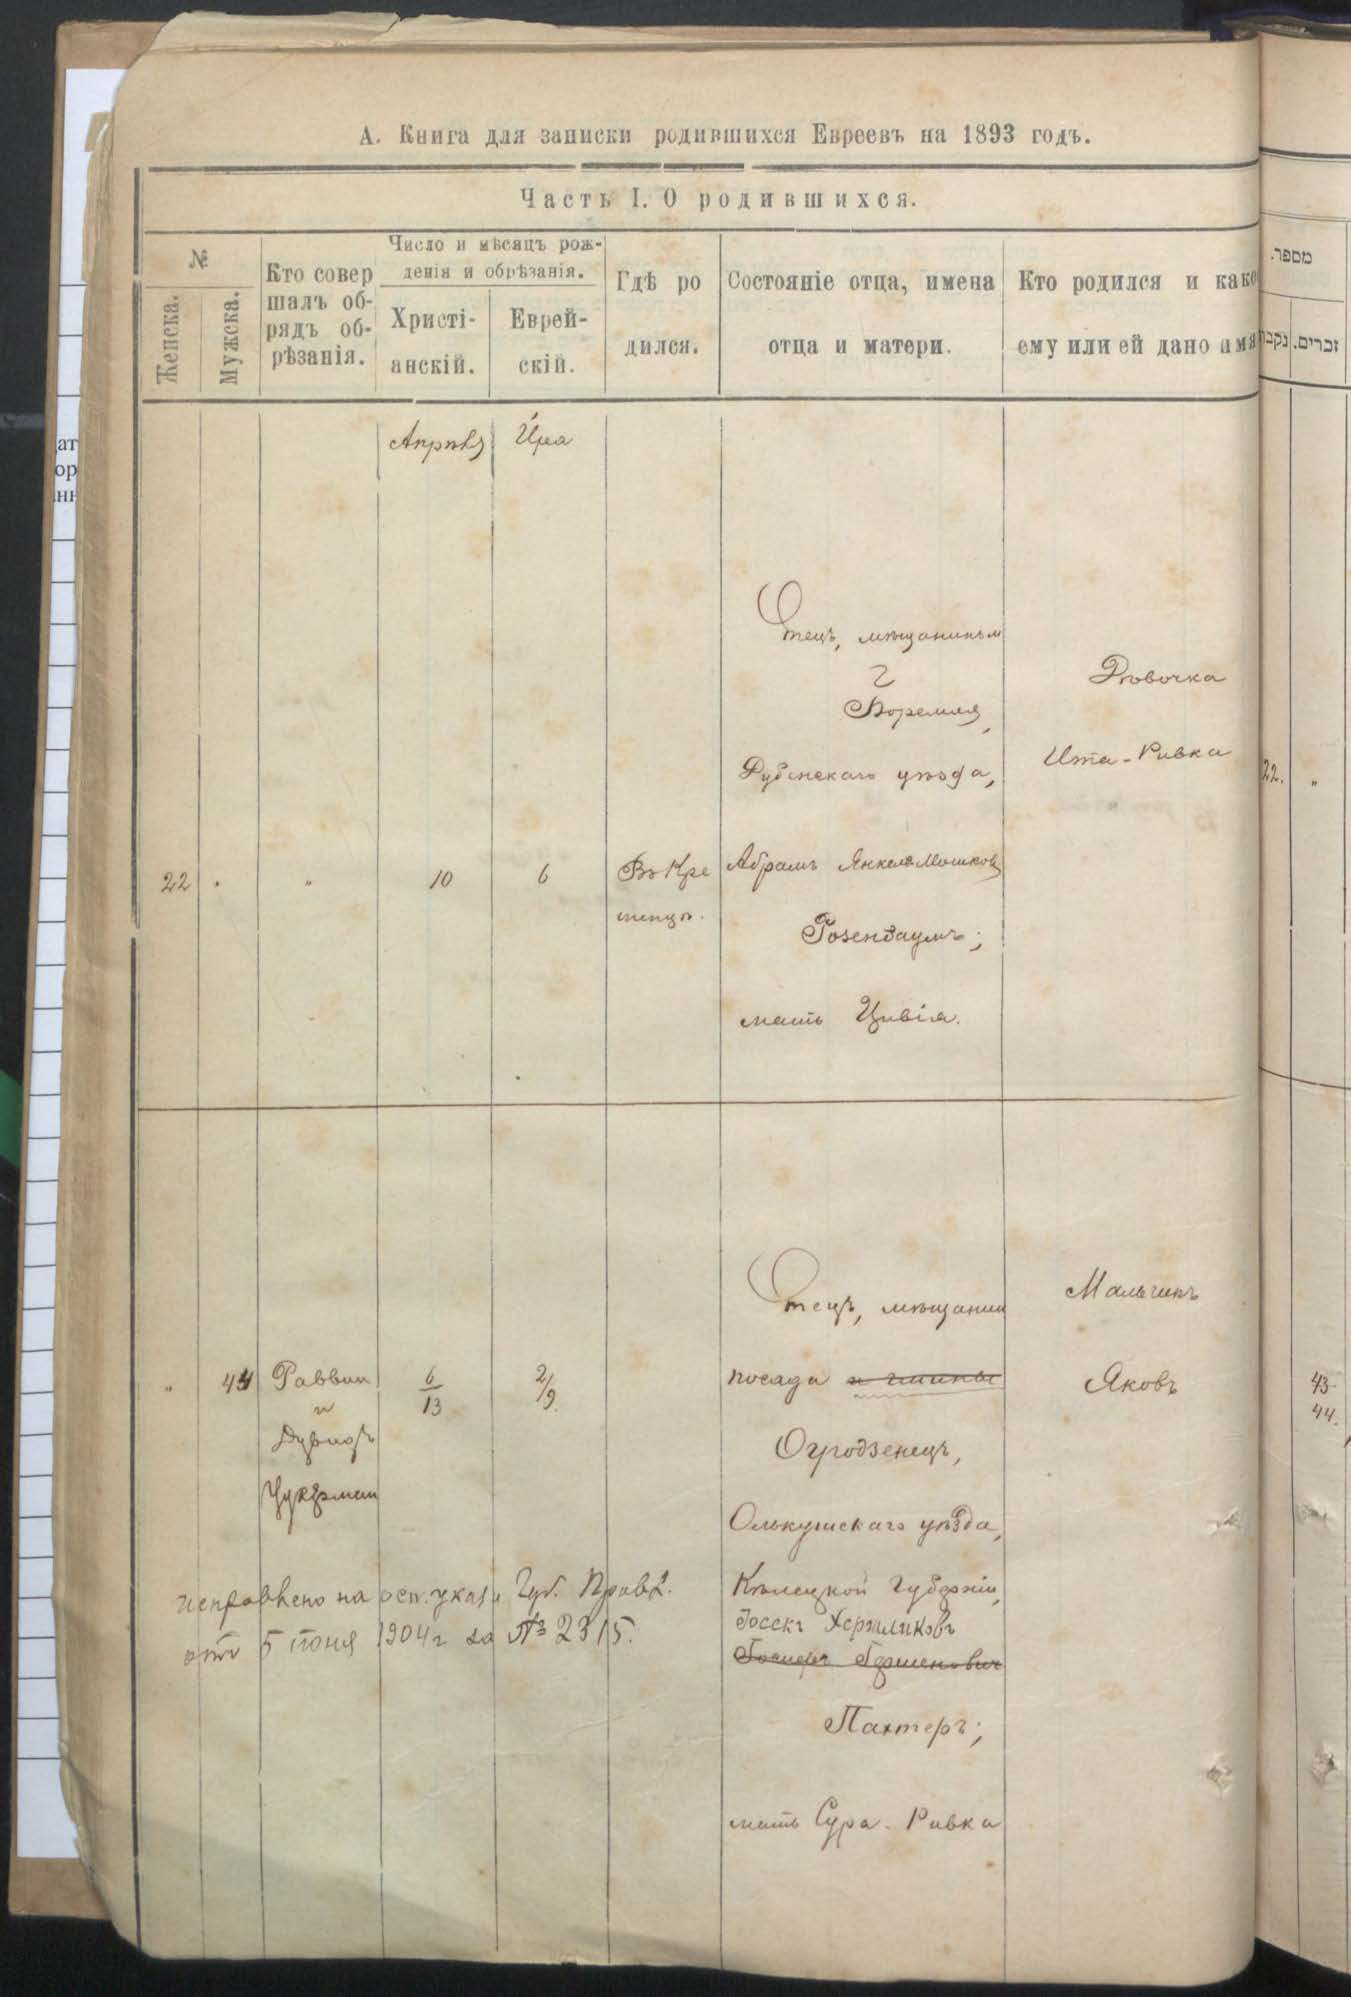 А. Книга для записки родившихся Евреевъ на 1893 годъ.
Часть I. О родившихся.
№
Женска.
Мужска.
Кто совер
шалъ об-
рядъ об-
рѣзанія.
Число и мѣсяцъ рож-
денія и обрѣзанія.
Христі-
анскій.
Еврей-
скій.
Гдѣ ро
дился.
Состояніе отца, имена
отца и матери.
Кто родился и како
ему или ей дано имя
מספר.
נקבה
זכרים.
Апрѣль
Іира
22
"
10
6
Въ Кре
менцѣ.
Отецъ, мѣщанинъ м
Боремля,
Дубенскаго уѣзда,
Абрамъ Янкель Мошков
Розенбаумъ;
мать Цивія.
Дѣвочка
Ита-Ривка
22. "
" 44
Раввин
и
Дувидъ
Цукерман
6
13
2/9.
Отецъ, мѣщанин
посада и гмины
Огродзенецъ,
Олькушскаго уѣзда,
Кѣлецкой губерніи,
Іосекъ Хершликовъ
Гершенович
Пахтеръ;
мать Сура-Ривка
Мальчикъ
Яковъ
43
44.
исправлено на осн. указа Губ. Правл.
отъ 5 іюня 1904 г за № 2315.
ат
ор
нн